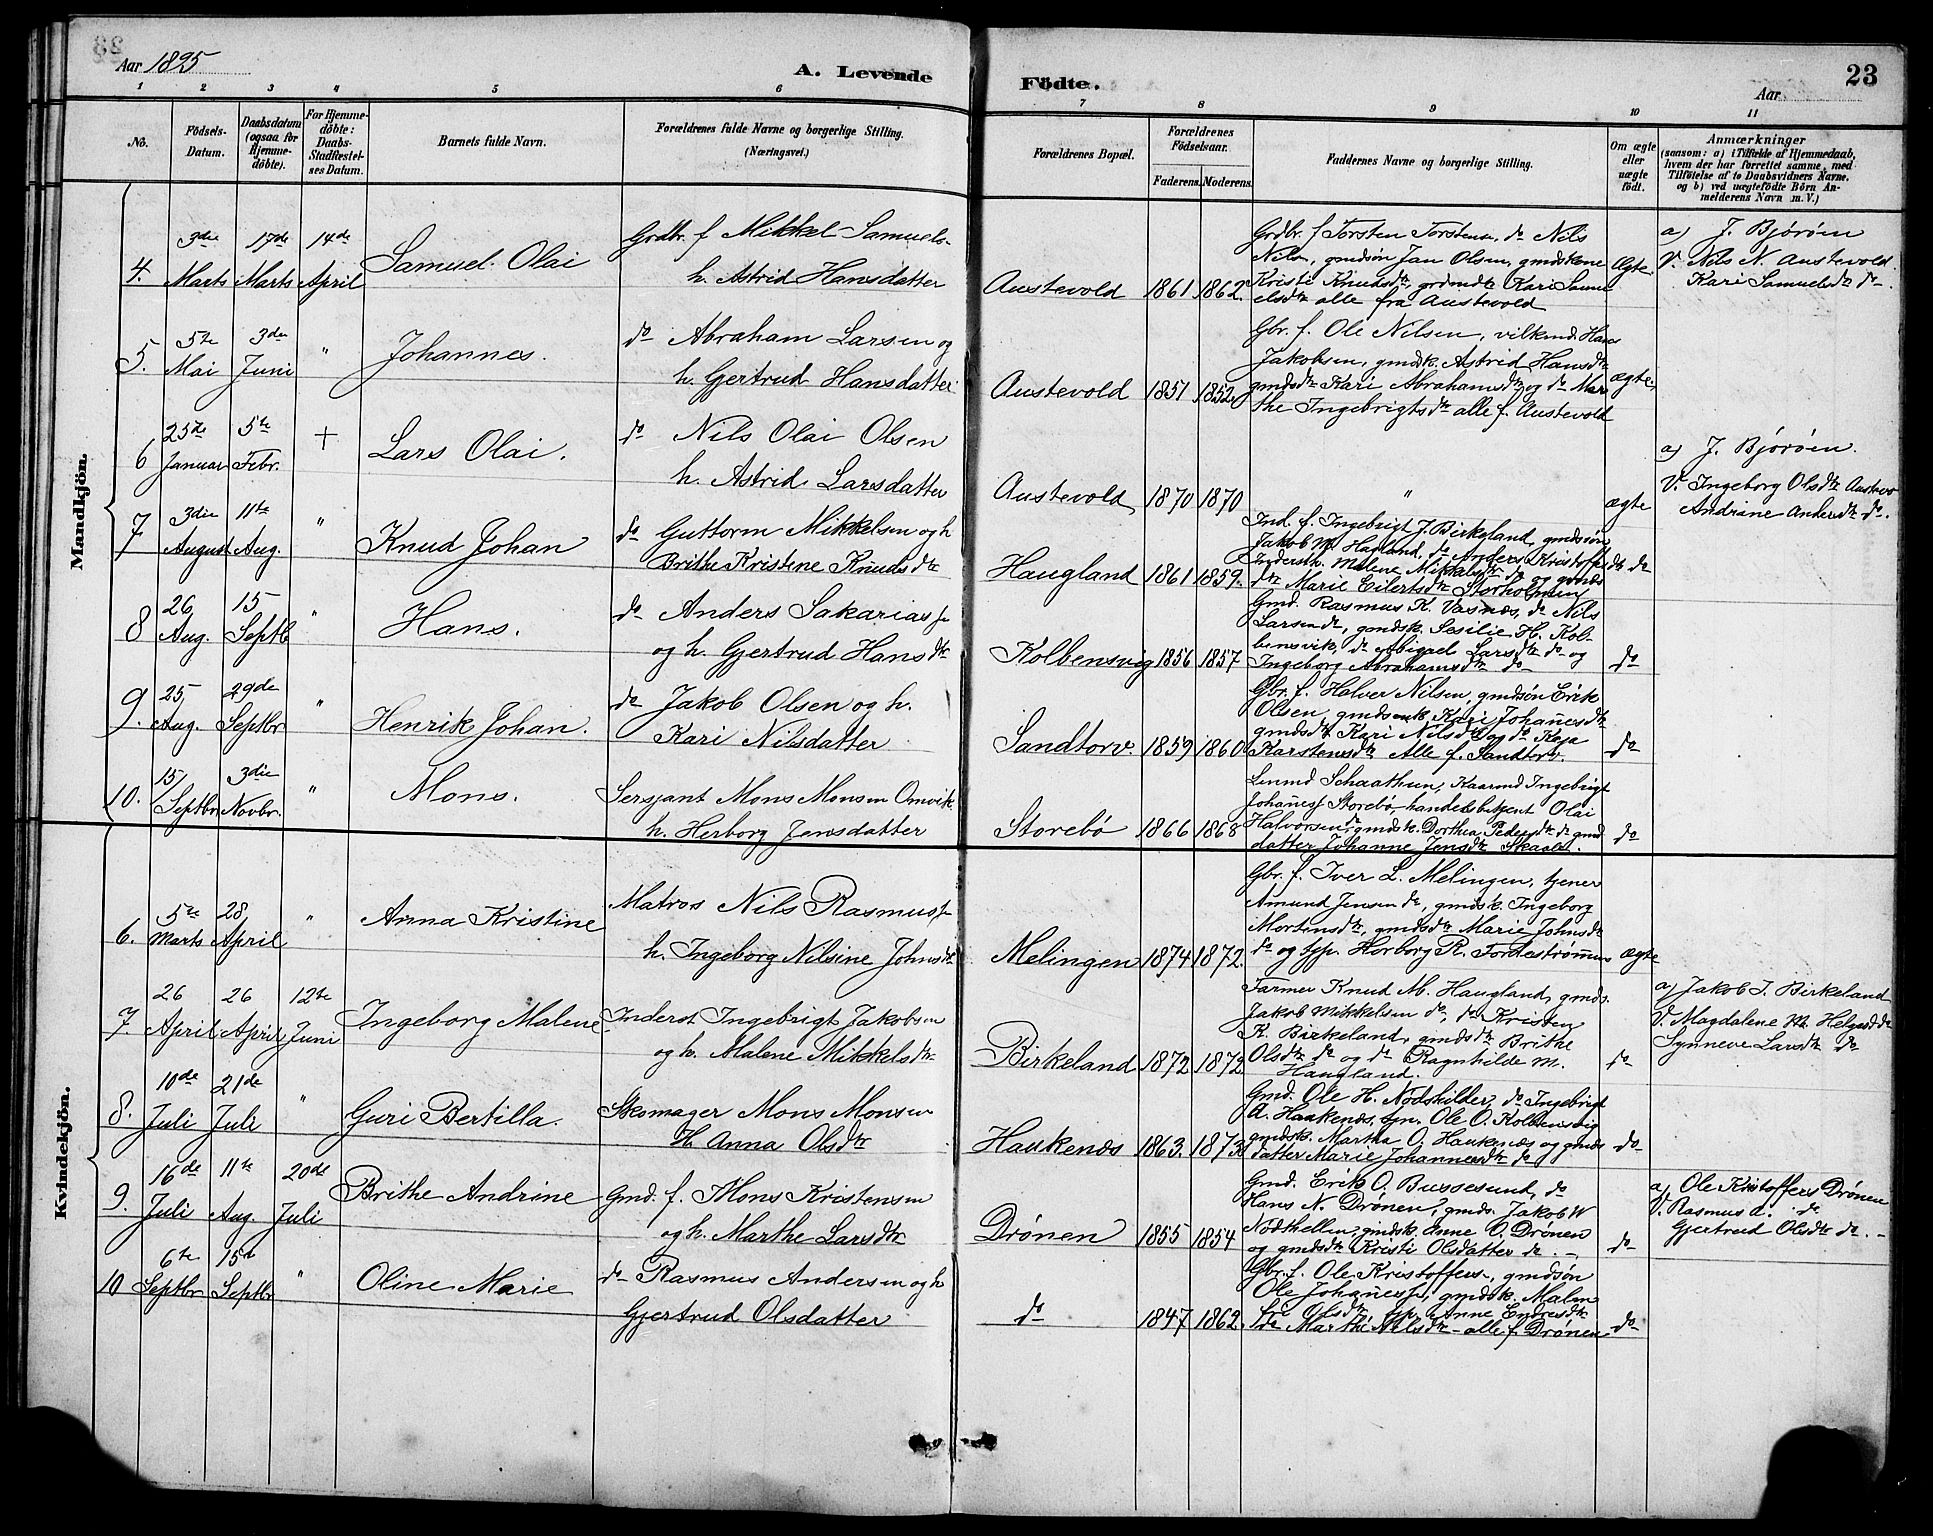 Aar 1895
A. Levende
Födte.
Aar
23
1 2 3 4 5 6 7 8 9 10 11
No.
Födsels-
Datum.
Daabsdatum
(ogsaa for
Hjemme-
döbte).
For Hjemme-
döbte:
Daabs-
Stadfæstel-
ses Datum.
Barnets fulde Navn.
Forældrenes fulde Navne og borgerlige Stilling.
(Næringsvei.)
Forældrenes Bopæl.
Forældrenes
Födselsaar.
Faderens. Moderens.
Faddernes Navne og borgerlige Stilling.
Om ægte
eller
uægte
födt.
Anmærkninger
(saasom: a) i Tilfælde af Hjemmedaab,
hvem der har forrettet samme, med
Tilföielse af to Daabsvidners Navne.
og b) ved uægtefödte Börn An-
melderens Navn m. V.)
Mandkjön.
4. 3die Marts 17de Marts 14de April
Samuel Olai
Grdbr. f Mikkel Samuels.
h. Astrid Hansdatter
Austevold 1861 1862.
Grdbr. f Torsten Torstens., do Nils
Nils., gmdsøn Jan Olsen, gmdskone
Kristi Knudsdtr, grdmdtr Kari Samu
elsdtr alle fra Austevold
Ægte.
a) J. Bjorøen
V. Nils N. Austevold.
Kari Samuelsdtr do
5. 5te Mai 3die Juni "
Johannes.
do Abraham Larsen og
h. Gjertrud Hansdatter
Austevold 1851 1852
Gbr. f. Ole Nilsen, vilkmd. Hans
Jakobsen, gmdsk. Astrid Hansdtr
gmdsdtr Kari Abrahamsdtr og do Mar
the Ingebrigtsdtr alle f. Austevold
ægte.
6 25de Januar 5te Febr. +
Lars Olai.
do Nils Olai Olsen
h. Astrid Larsdatter
Austevold 1870 1870
"
ægte
a) J. Bjorøen.
V. Ingeborg Olsdtr Austevo
Andrine Andersdtr do.
7 3die August 11te Aug. "
Knud Johan
do Guttorm Mikkelsen og h
Brithe Kristine Knudsdtr
Haugland 1861 1859.
Ind. f. Ingebrigt J. Birkeland, gmdsøn
Jakob M. Hagland, do Anders Kristoffer
Inderstk. Malene Mikkelsdtr do og gmds
dtr Marie Eilertsdtr Storholmen
do
8 26 Aug. 15 Septb "
Hans.
do Anders Sakarias
og h. Gjertrud Hansdtr
Kolbensvig 1856 1857
Gmd. Rasmus K. Vasnæs, do Nils
Larsen do, gmdsk. Sesilie H. Kol-
bensvik, do Abigael Larsdtr do og
Ingeborg Abrahamsdtr do
do
9. 25 Aug. 29de Septbr "
Henrik Johan.
do Jakob Olsen og h.
Kari Nilsdatter
Sandtorv. 1859 1860
Gbr. f. Halver Nilsen, gmdsøn Erik
Olsen, gmdsenk. Kari Johanesdtr
gmdsdtr Kari Nilsdtr og do Kaja
Karstensdtr Alle f. Sandtorv.
do
10. 15 Septbr 3die Novbr. "
Mons.
Sersjant Mons Monsen Omvik
h. Herborg Jensdatter
Storebø 1866 1868
Lnmd Schaathun, Kaarmd Ingebrigt
Johanesf Storebø, handelsbetjent Olai
Halvorsen do, gmdsk. Dorthea Pedersdtr do gmd
datter Johanne Jensdtr Skaale.
do
Kvindekjön.
6. 5te Marts 28 April "
Anna Kristine
Matros Nils Rasmus
h. Ingeborg Nilsine Johnsdtr
Melingen 1874 1872.
Gbr. f. Iver L. Melingen, tjener
Amund Jensen do, gmdsk. Ingeborg
Mortensdtr, gmdsdtr Marie Johnsdtr
do og tjp. Herborg R. Fordestrømmen
Ægte
7. 26 April 26 April 12te Juni
Ingeborg Malene
Inderst Ingebrigt Jakobsen
og h. Malene Mikkelsdtr
Birkeland 1872 1872
Farmer Knud M. Haugland, gmds.
Jakob Mikkelsen do, do Kristen
K. Birkeland, gmdsdtr Brithe
Olsdtr do og do Ragnhilde M.
Haugland.
do
a) Jakob I. Birkeland
V. Magdalene M. Helgesd do
Synneve Larsdtr do
8. 10de Juli 21de Juli "
Guri Bertilla.
Skomager Mons Monsen
H. Anna Olsdtr
Haukenæs 1863. 1873
Gmd. Ole H. Nodshilder, do Ingebrigt
A. Haukenæs, tjn. Ole O. Kolbensvig
gmdsk. Martha O. Haukenæs og gmds
datter Marie Johannesdtr do
do
9. 16de Juli 11te Aug. 20de Juli
Brithe Andrine
Gmd. f. Mons Kristensen
og h. Marthe Larsdtr
Drønen 1855 1854
Gmd. Erik O. Bussesund, do
Hans N. Drønen, gmds. Jakob W
Nodthellen, gmdsk. Anne O. Drønen
og gmdsdtr Kristi Olsdatter do. -
do
a) Ole Kristoffers Drønen
V. Rasmus A. do
Gjertrud Olsdtr do. -
10 6te Septbr 15d Septbr "
Oline Marie
do Rasmus Andersen og h
Gjertrud Olsdatter
do 1847 1862
Gbr. f. Ole Kristoffers, gmdsøn
Ole Johanesf, gmdsk. Malen
Olsdtr, tjp. Anne Endresdtr
do Marthe Nilsdtr - alle f Drønen
do